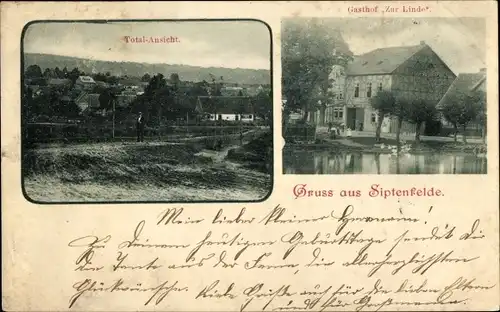 Total-Ansicht.
Gasthof "Zur Linde".
Gruss aus Siptenfelde.
Mein lieber kleiner Hermann!
Zu Deinem heutigen Geburtstage sendet Dir
die Tante aus der Ferne, die allerherzlichsten
Glückwünsche. Viele Grüße auch für die lieben Eltern
und für Großmama.